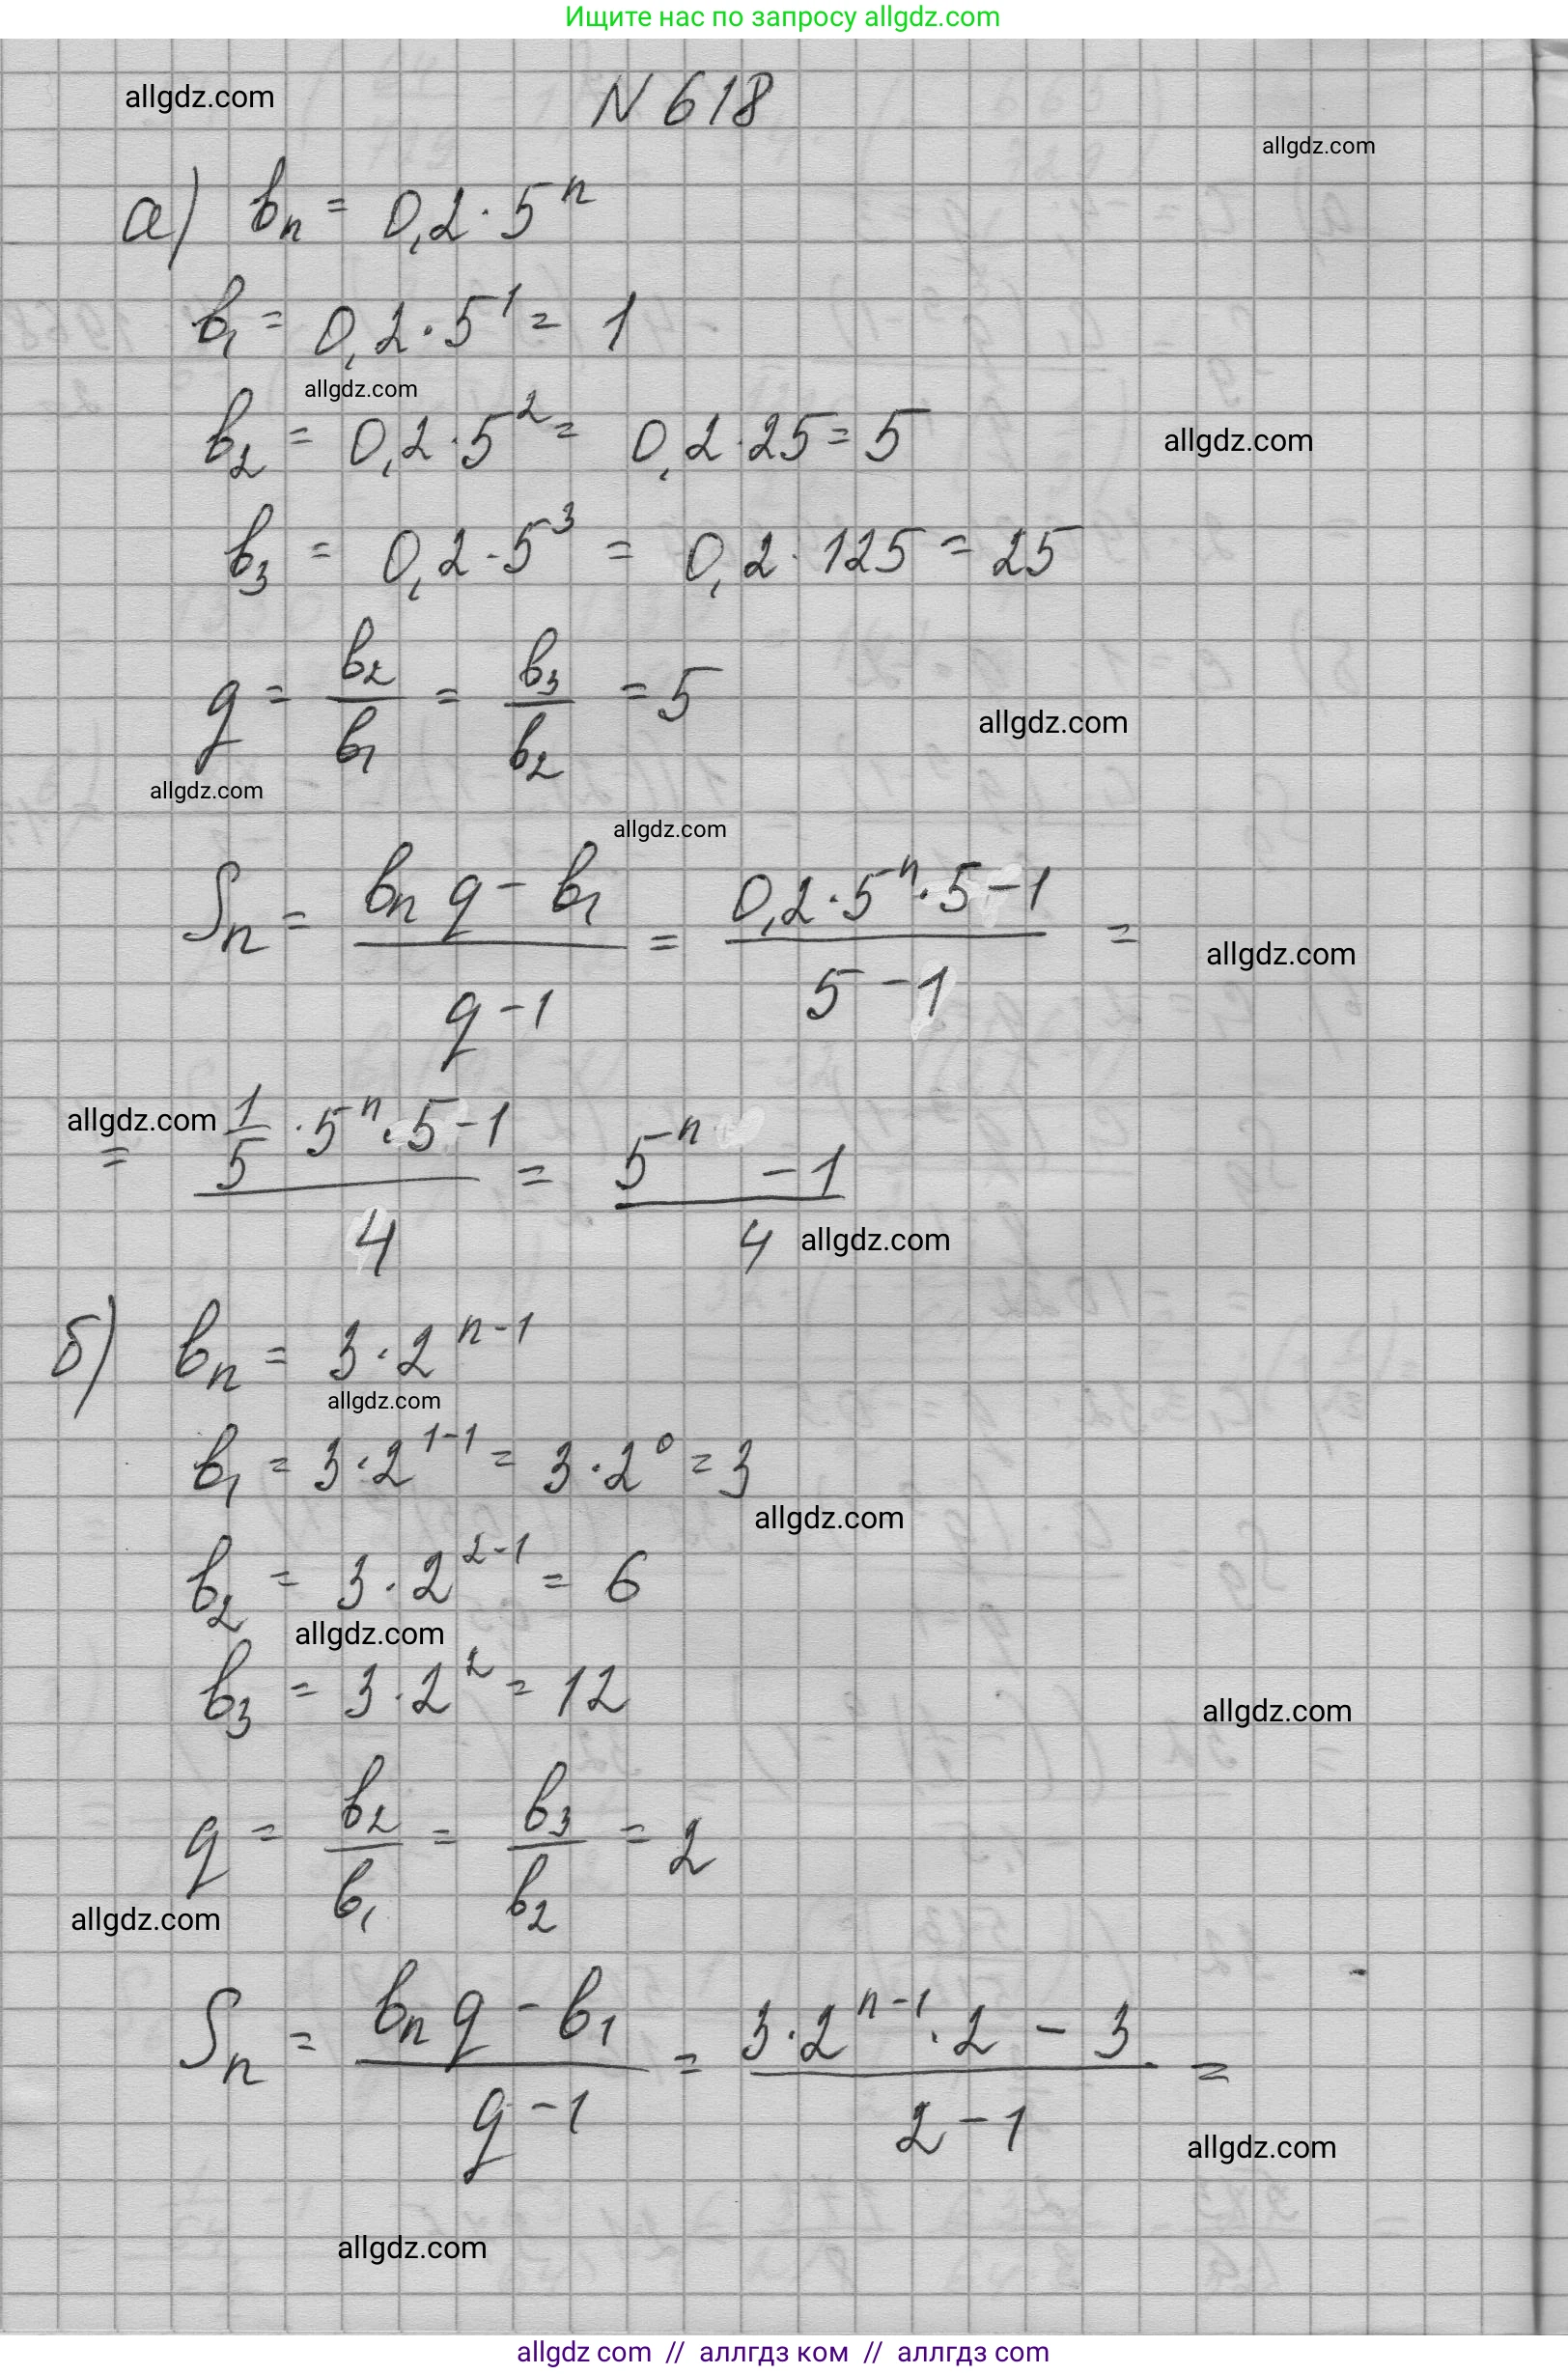 Ищите нас по запросу allgdz.com
allgdz.com
N 618
allgdz.com
а) bn = 0,2 · 5^n
b1 = 0,2 · 5^1 = 1
allgdz.com
b2 = 0,2 · 5^2 = 0,2 · 25 = 5
allgdz.com
b3 = 0,2 · 5^3 = 0,2 · 125 = 25
q = b2/b1 = b3/b2 = 5
allgdz.com
allgdz.com
allgdz.com
Sn = (bn q - b1)/(q - 1) = (0,2 · 5^n · 5 - 1)/(5 - 1) =
allgdz.com
allgdz.com
= (1/5 · 5^n · 5 - 1)/4 = (5^n - 1)/4
allgdz.com
б) bn = 3 · 2^(n-1)
allgdz.com
b1 = 3 · 2^(1-1) = 3 · 2^0 = 3
allgdz.com
b2 = 3 · 2^(2-1) = 6
allgdz.com
b3 = 3 · 2^2 = 12
allgdz.com
q = b2/b1 = b3/b2 = 2
allgdz.com
Sn = (bn q - b1)/(q - 1) = (3 · 2^(n-1) · 2 - 3)/(2 - 1) =
allgdz.com
allgdz.com
allgdz com // аллгдз ком // аллгдз com